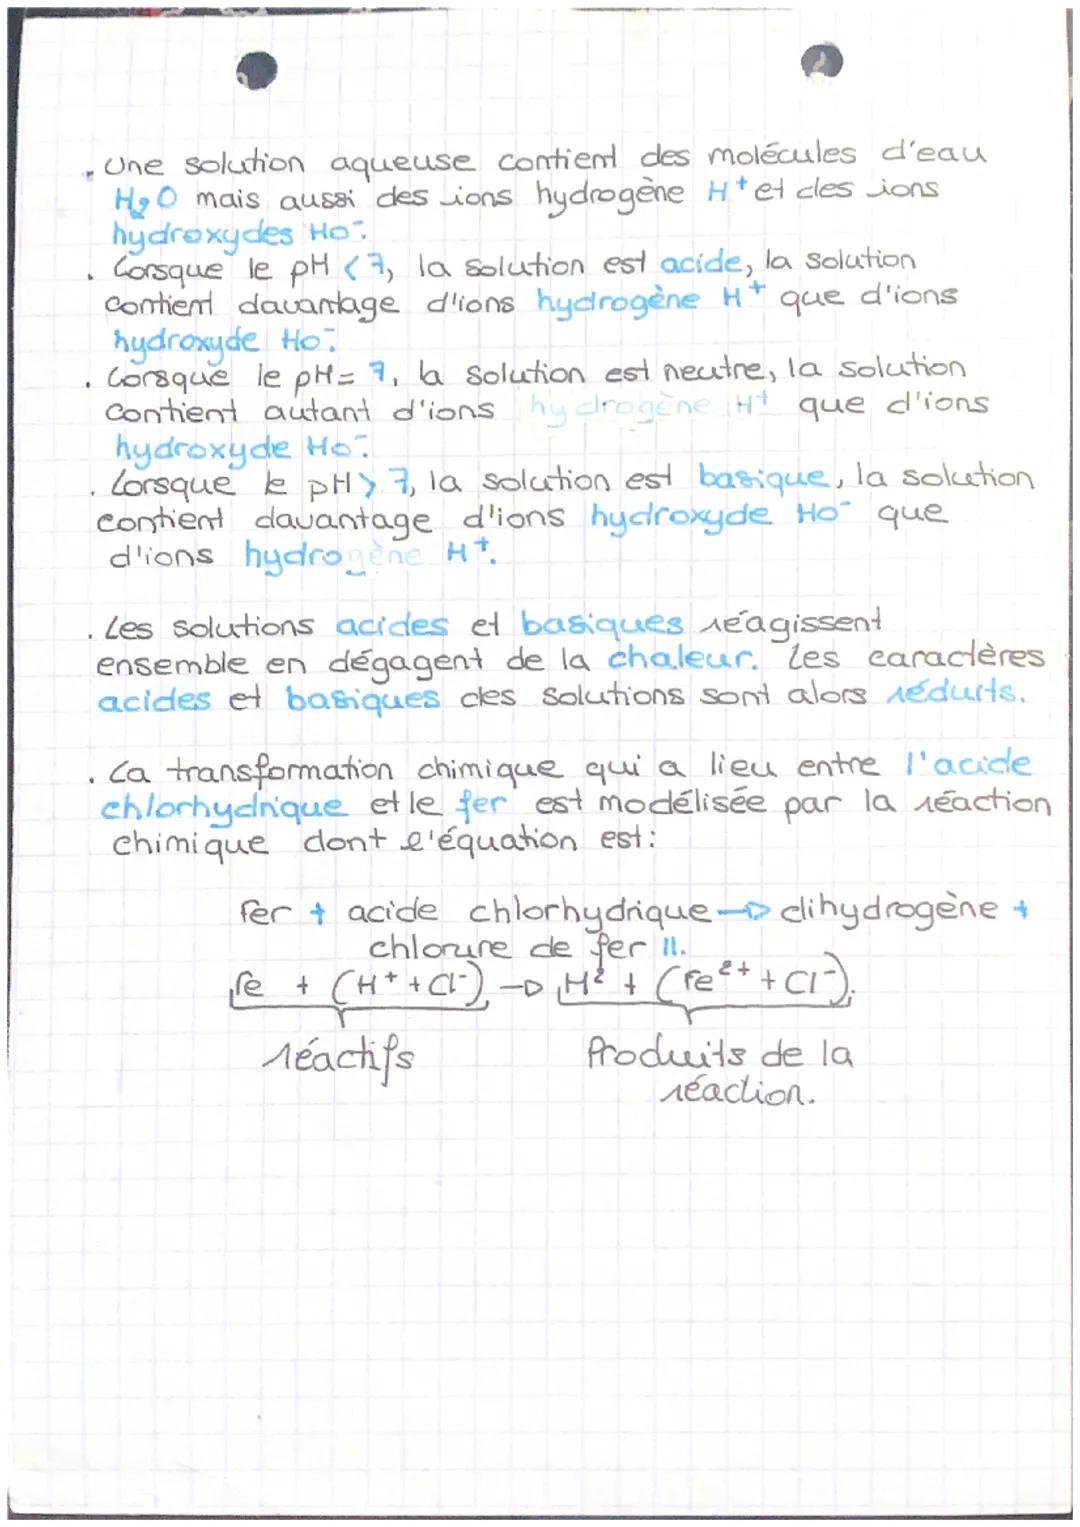 . Une solution aqueuse contient des molécules d'eau
H₂O mais aussi des ions hydrogène H⁺ et des ions
hydroxydes HO⁻.
. Lorsque le pH < 7, la solution est acide, la solution
contient davantage d'ions hydrogène H⁺ que d'ions
hydroxyde HO⁻.
. Lorsque le pH = 7, la solution est neutre, la solution
contient autant d'ions hydrogène H⁺ que d'ions
hydroxyde HO⁻.
. Lorsque le pH > 7, la solution est basique, la solution
contient davantage d'ions hydroxyde HO⁻ que
d'ions hydrogène H⁺.
. Les solutions acides et basiques réagissent
ensemble en dégagent de la chaleur. Les caractères
acides et basiques des solutions sont alors réduits.
. La transformation chimique qui a lieu entre l'acide
chlorhydrique et le fer est modélisée par la réaction
chimique dont l'équation est :
fer + acide chlorhydrique → dihydrogène +
chlorure de fer II.
Fe + (H⁺ + Cl⁻) → H² + (Fe²⁺ + Cl⁻).
réactifs Produits de la
réaction.